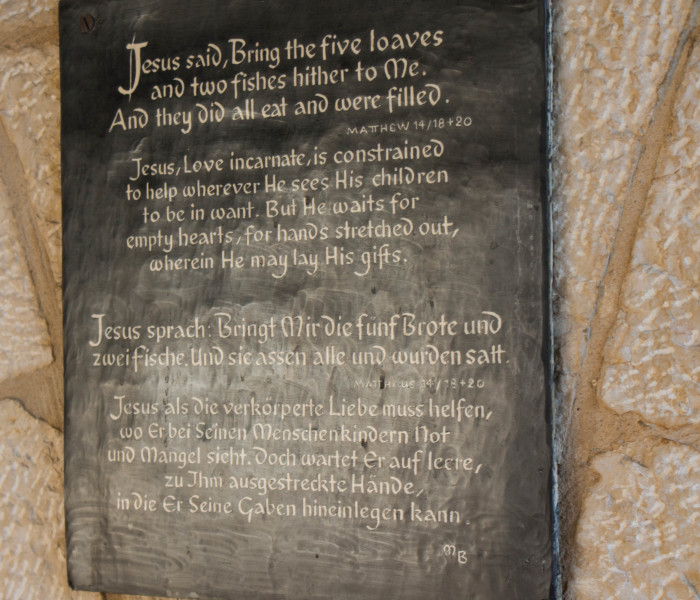 Jesus said, Bring the five loaves
and two fishes hither to Me.
And they did all eat and were filled.
MATTHEW 14/18+20
Jesus, Love incarnate, is constrained
to help wherever He sees His children
to be in want. But He waits for
empty hearts, for hands stretched out,
wherein He may lay His gifts.
Jesus sprach: Bringt Mir die fünf Brote und
zwei fische. Und sie assen alle und wurden satt.
MATTHÄUS 14/18+20
Jesus als die verkörperte Liebe muss helfen,
wo Er bei Seinen Menschenkindern Not
und Mangel sieht. Doch wartet Er auf leere,
zu Ihm ausgestreckte Hände,
in die Er Seine Gaben hineinlegen kann.
MB